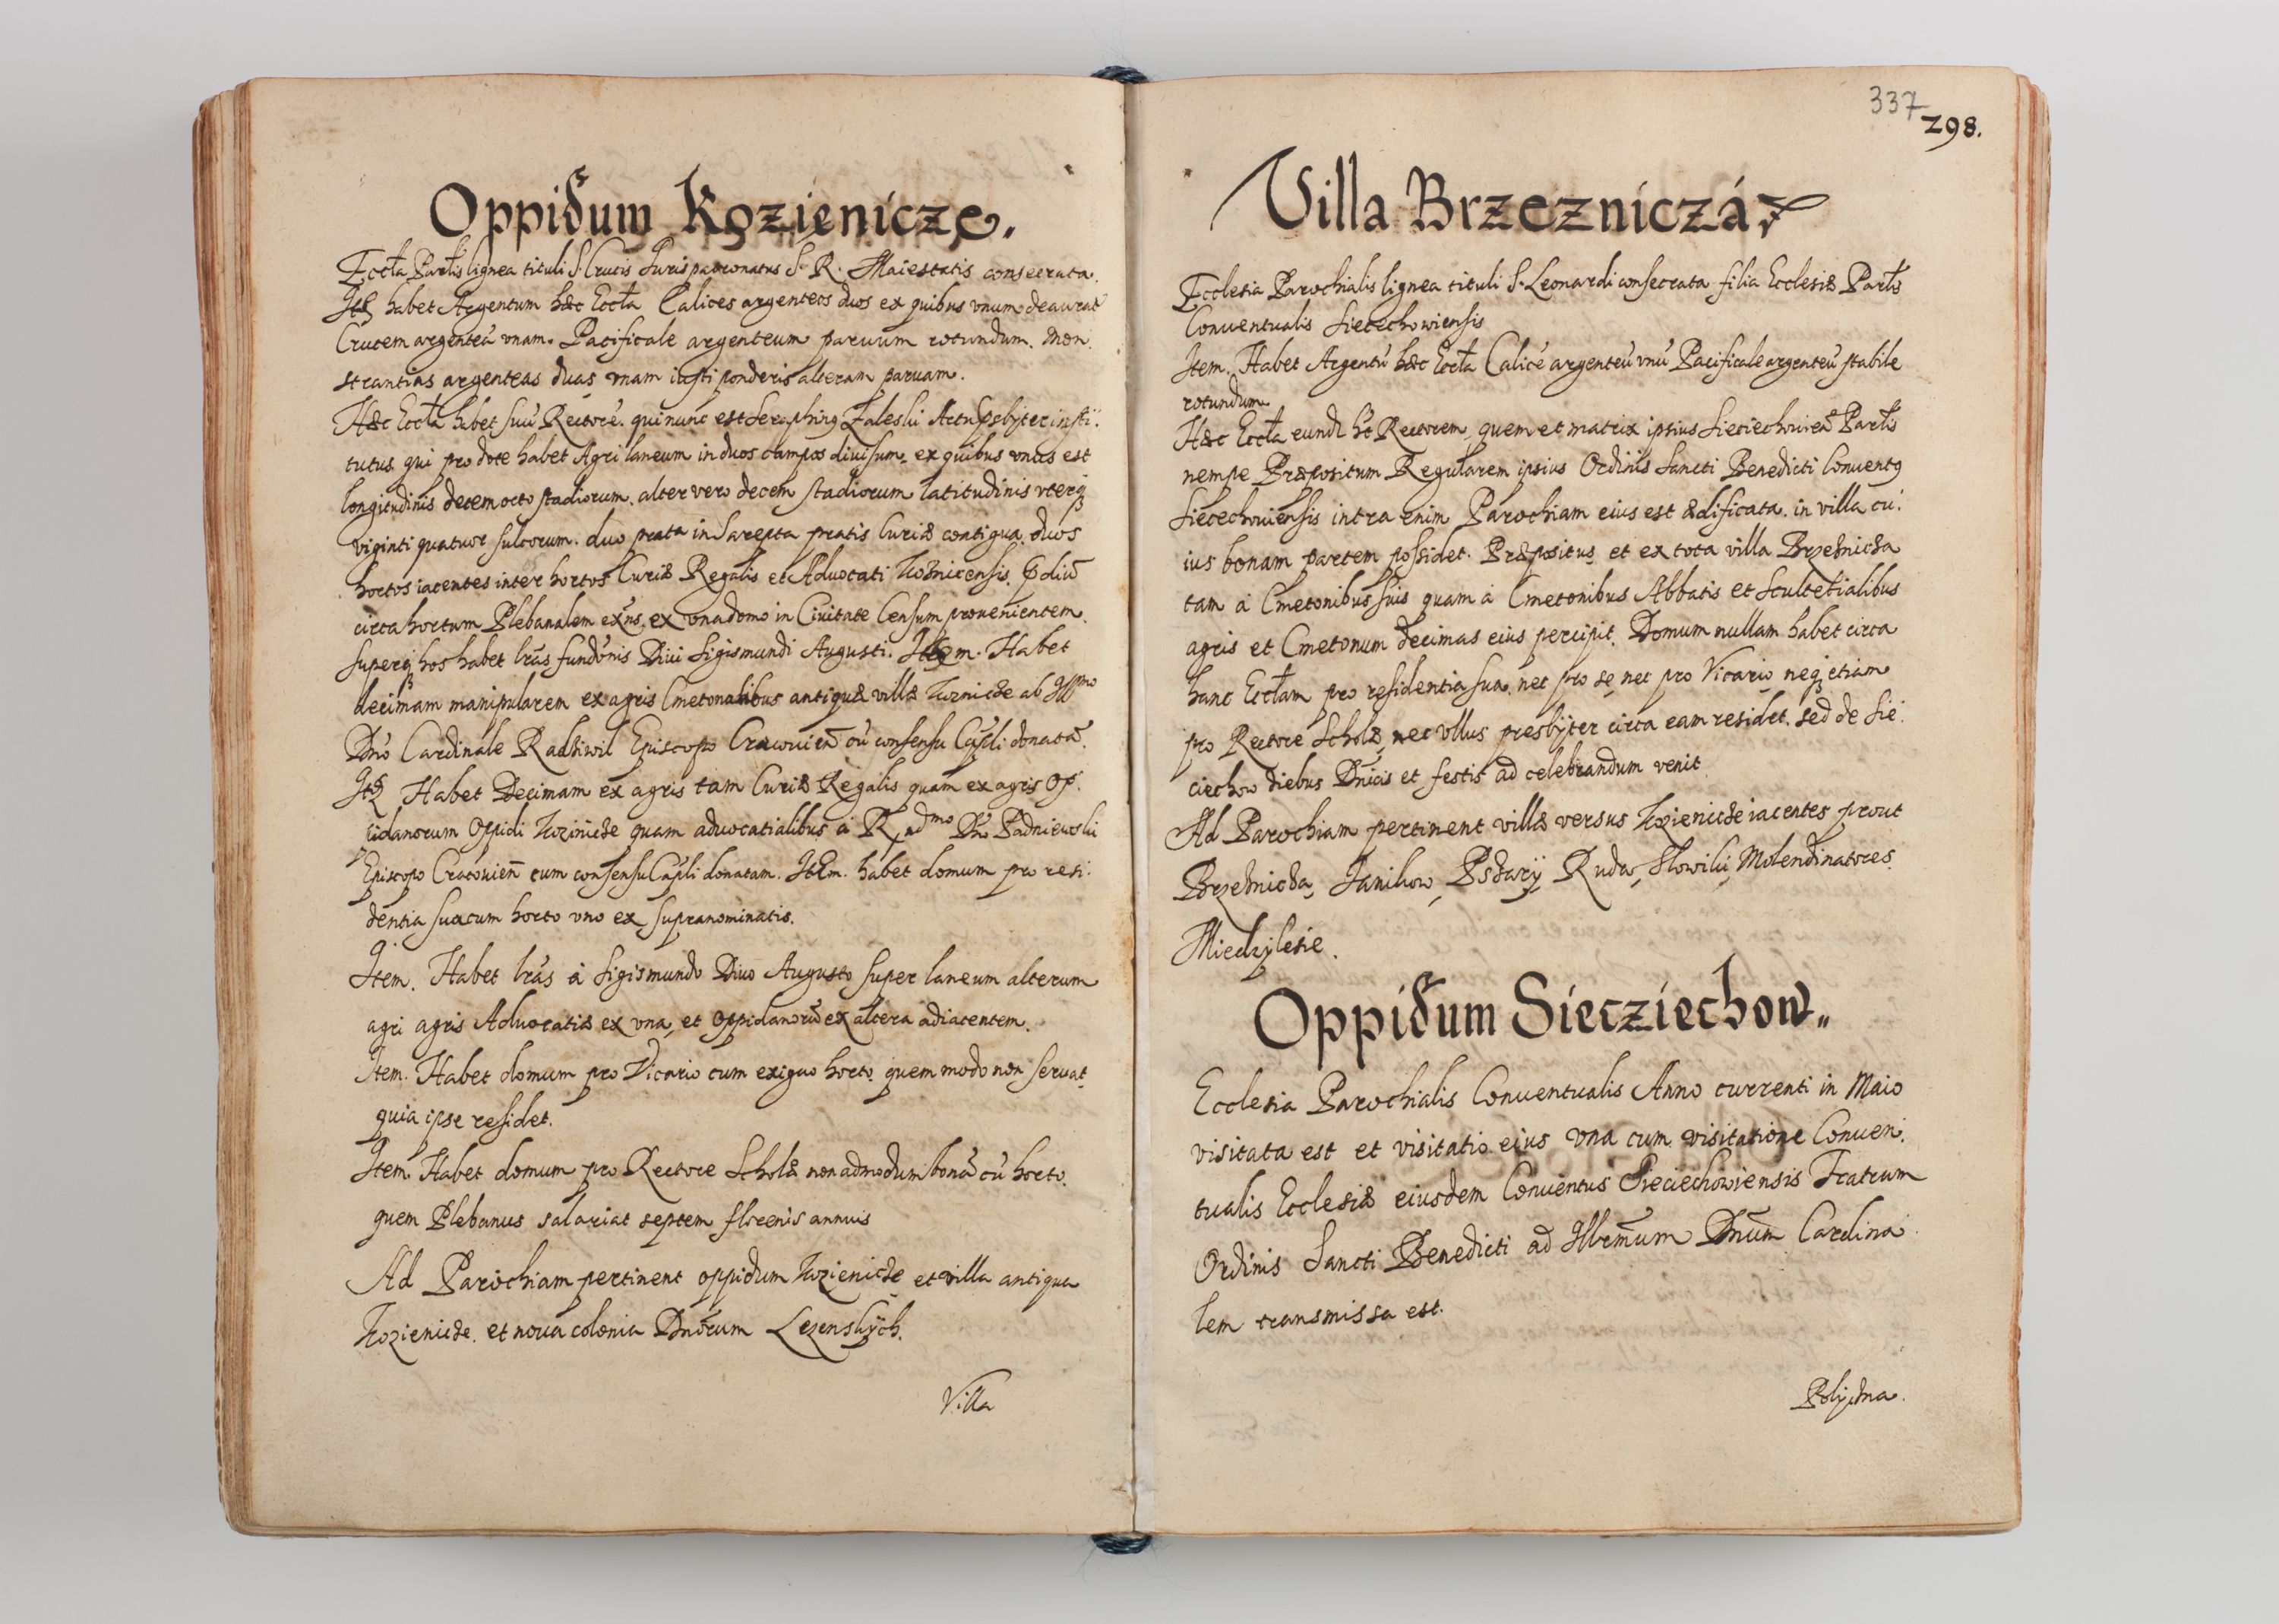 Oppidum Kozienicze.
Eccła Parłis lignea tituli S. Crucis Juris patronatus S. R. Maiestatis consecrata.
Itē habet Argentum hæc Eccła Calices argenteos duos ex quibus vnum deaurat
Crucem argenteā vnam. Pacificale argenteum paruum rotundum. Mon:
strantias argenteas duas vnam iusti ponderis alteram paruam.
Hæc Eccła habet suū Rectorē. qui nunc est Seraphinꝰ Zaleski Actu Psbyter insti:
tutus qui pro dote habet Agri laneum in duos campos diuisum. ex quibus vnus est
longitudinis decem octo stadiorum. alter vero decem stadiorum latitudinis vterqꝫ
viginti quatuor sulcorum. duo prata in Sarepta pratis Curiæ contigua. duos
hortos iacentes inter hortos Curiæ Regalis et Aduocati Koźnicensis.
circa hortum Plebanalem exñs. ex vna domo in Ciuitate Censum prouenientem.
superqꝫ hos habet lrās fundōnis Diui Sigismundi Augusti. Item. Habet
decimam manipularem ex agris Cmetonalibus antiquæ villæ Koznicze ab Illmo
Dño Cardinale Radziwil Episcopo Cracouieñ cū consensu Capłi donatā.
Itē Habet Decimam ex agris tam Curiæ Regalis quam ex agris Op:
pidanorum Oppidi Kozinicze quam aduocatialibus à Rndmo Dño Padniewski
Episcopo Cracouieñ cum consensu Capłi donatam. Item. habet domum pro resi:
dentia sua cum horto vno ex supranominatis.
Item. Habet lrās à Sigismundo Diuo Augusto super laneum alterum
agri agris Aduocatiæ ex vna, et Oppidanorū ex altera adiacentem.
Item. Habet domum pro Vicario cum exiguo horto quem modo non seruat
quia ipse residet.
Item. Habet domum pro Rectore Scholæ non admodum bonā cū horto.
quem Plebanus salariat septem florenis annuis
Ad Parochiam pertinent oppidum Kozienicze et villa antiqua
Kozienicze. et noua colonia Dnōrum Lezenskÿch.
Villa
337
298.
Villa Brzezniczá
Ecclesia Parochialis lignea tituli S. Leonardi consecrata filia Ecclesiæ Parłis
Conuentualis Siecechowiensis
Item. Habet Argentū hæc Eccła Calicē argenteū vnū Pacificale argenteū stabile
rotundum.
Hæc Eccła eundē ht Rectorem, quem et matrix ipsius Sieciechouieñ Parłis
nempe Præpositum Regularem ipsius Ordinis Sancti Benedicti Conuentꝰ
Siecechouiensis intra enim Parochiam eius est ædificata. in villa cu:
ius bonam partem possidet. Præpositus et ex tota villa Brzeźnicza
tam à Cmetonibus suis quam à Cmetonibus Abbatis et Scultetialibus
agris et Cmetonum decimas eius percipit. Domum nullam habet circa
hanc Eccłam pro residentia sua, nec pro se nec pro Vicario neqꝫ etiam
pro Rectore Scholæ, nec vllus presbÿter circa eam residet. sed de Sie:
ciechow diebus Dnīcis et festis ad celebrandum venit.
Ad Parochiam pertinent villæ versus Kozienicze iacentes prout
Brzeźnicza, Janikow, Psdarÿ Ruda, Slowiki, Molendinatores.
Miedzylesie.
Oppidum Siecziechow.
Ecclesia Parochialis Conuentualis Anno currenti in Maio
visitata est et visitatio eius vna cum visitatione Conuen:
tualis Ecclesiæ eiusdem Conuentus Sieciechowiensis Fratrum
Ordinis Sancti Benedicti ad Illrm̄um Dnūm Cardina:
lem transmissa est.
Polÿczna.